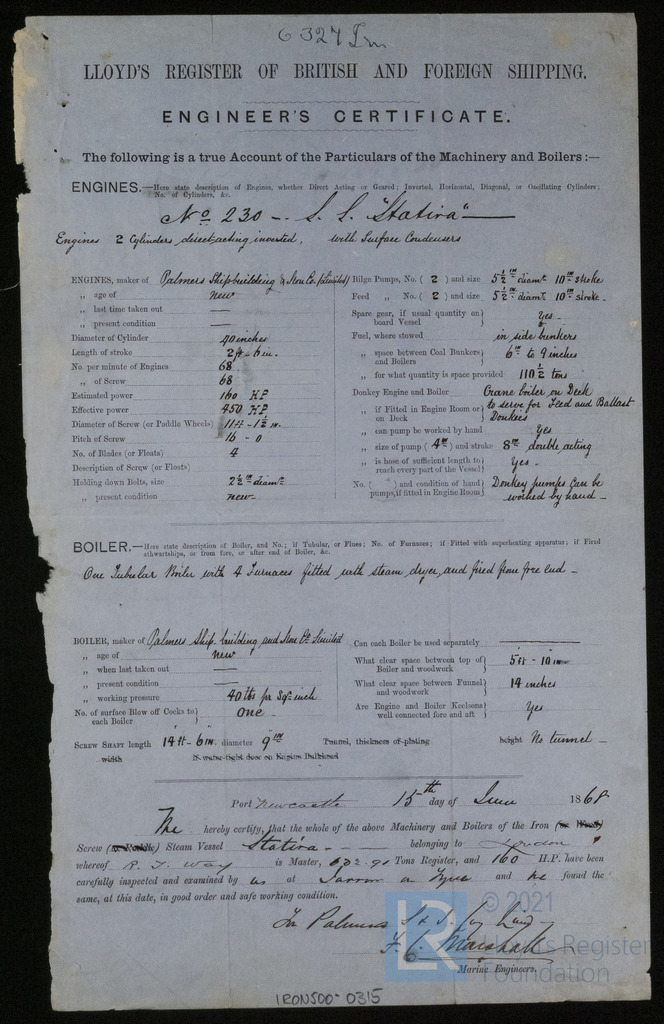 6327 Irn
LLOYD'S REGISTER OF BRITISH AND FOREIGN SHIPPING.
ENGINEER'S CERTIFICATE.
The following is a true Account of the Particulars of the Machinery and Boilers:—
ENGINES.—Here state description of Engines, whether Direct Acting or Geared; Inverted, Horizontal, Diagonal, or Oscillating Cylinders;
No. of Cylinders, &c.
No 230 -. S. S. "Statira"
Engines 2 Cylinders direct-acting inverted, with Surface Condensers
ENGINES, maker of Palmers Shipbuilding & Iron Co. (Limited)
„ age of new
„ last time taken out —
„ present condition —
Diameter of Cylinder 40 inches
Length of stroke 2 ft - 6 in.
No. per minute of Engines 68
„ of Screw 68
Estimated power 160 H.P
Effective power 450 H.P
Diameter of Screw (or Paddle Wheels) 11 ft - 1½ in.
Pitch of Screw 16 - 0
No. of Blades (or Floats) 4
Description of Screw (or Floats)
Holding down Bolts, size 2½ in diamr
„ present condition new-
Bilge Pumps, No. ( 2 ) and size 5½ in diamr 10 in stroke
Feed „ No. ( 2 ) and size 5½ in diamr 10 in stroke -
Spare gear, if usual quantity on
board Vessel } Yes -
Fuel, where stowed in side bunkers
„ space between Coal Bunkers
and Boilers } 6 in to 9 inches
„ for what quantity is space provided 110½ tons
Donkey Engine and Boiler Crane boiler on Deck
„ if Fitted in Engine Room or
on Deck } to serve for Feed and Ballast
Donkeys
„ can pump be worked by hand Yes
„ size of pump ( 4 in ) and stroke 8 in double acting
„ is hose of sufficient length to
reach every part of the Vessel } Yes -
No. ( ) and condition of hand
pumps, if fitted in Engine Room } Donkey pumps can be
worked by hand -
BOILER.—Here state description of Boiler, and No.; if Tubular, or Flues; No. of Furnaces; if Fitted with superheating apparatus; if Fired
athwartships, or from fore, or after end of Boiler, &c.
One Tubular Boiler with 4 Furnaces fitted with steam dryer, and fired from fore end -
BOILER, maker of Palmers Ship building and Iron Co Limited
„ age of new
„ when last taken out —
„ present condition —
„ working pressure 40 lbs per Sqr inch
No. of surface Blow off Cocks to
each Boiler } One -
Can each Boiler be used separately —
What clear space between top of
Boiler and woodwork } 5 ft - 10 in
What clear space between Funnel
and woodwork } 14 inches
Are Engine and Boiler Keelsons
well connected fore and aft } Yes
SCREW SHAFT length 14 ft - 6 in. diameter 9 in Tunnel, thickness of plating height No tunnel -
width Is water-tight door on Engine Bulkhead
Port Newcastle 15th day of June 1868
We hereby certify, that the whole of the above Machinery and Boilers of the Iron (or Wood)
Screw (or Paddle) Steam Vessel Statira - - belonging to London
whereof R. J. Way is Master, 632.91 Tons Register, and 160 H.P. have been
carefully inspected and examined by us at Jarrow on Tyne and we found the
same, at this date, in good order and safe working condition.
For Palmers S & I. Coy Limd
F. C. Marshall
Marine Engineers.
LR
© 2021
Lloyd's Register
Foundation
IRON500-0315